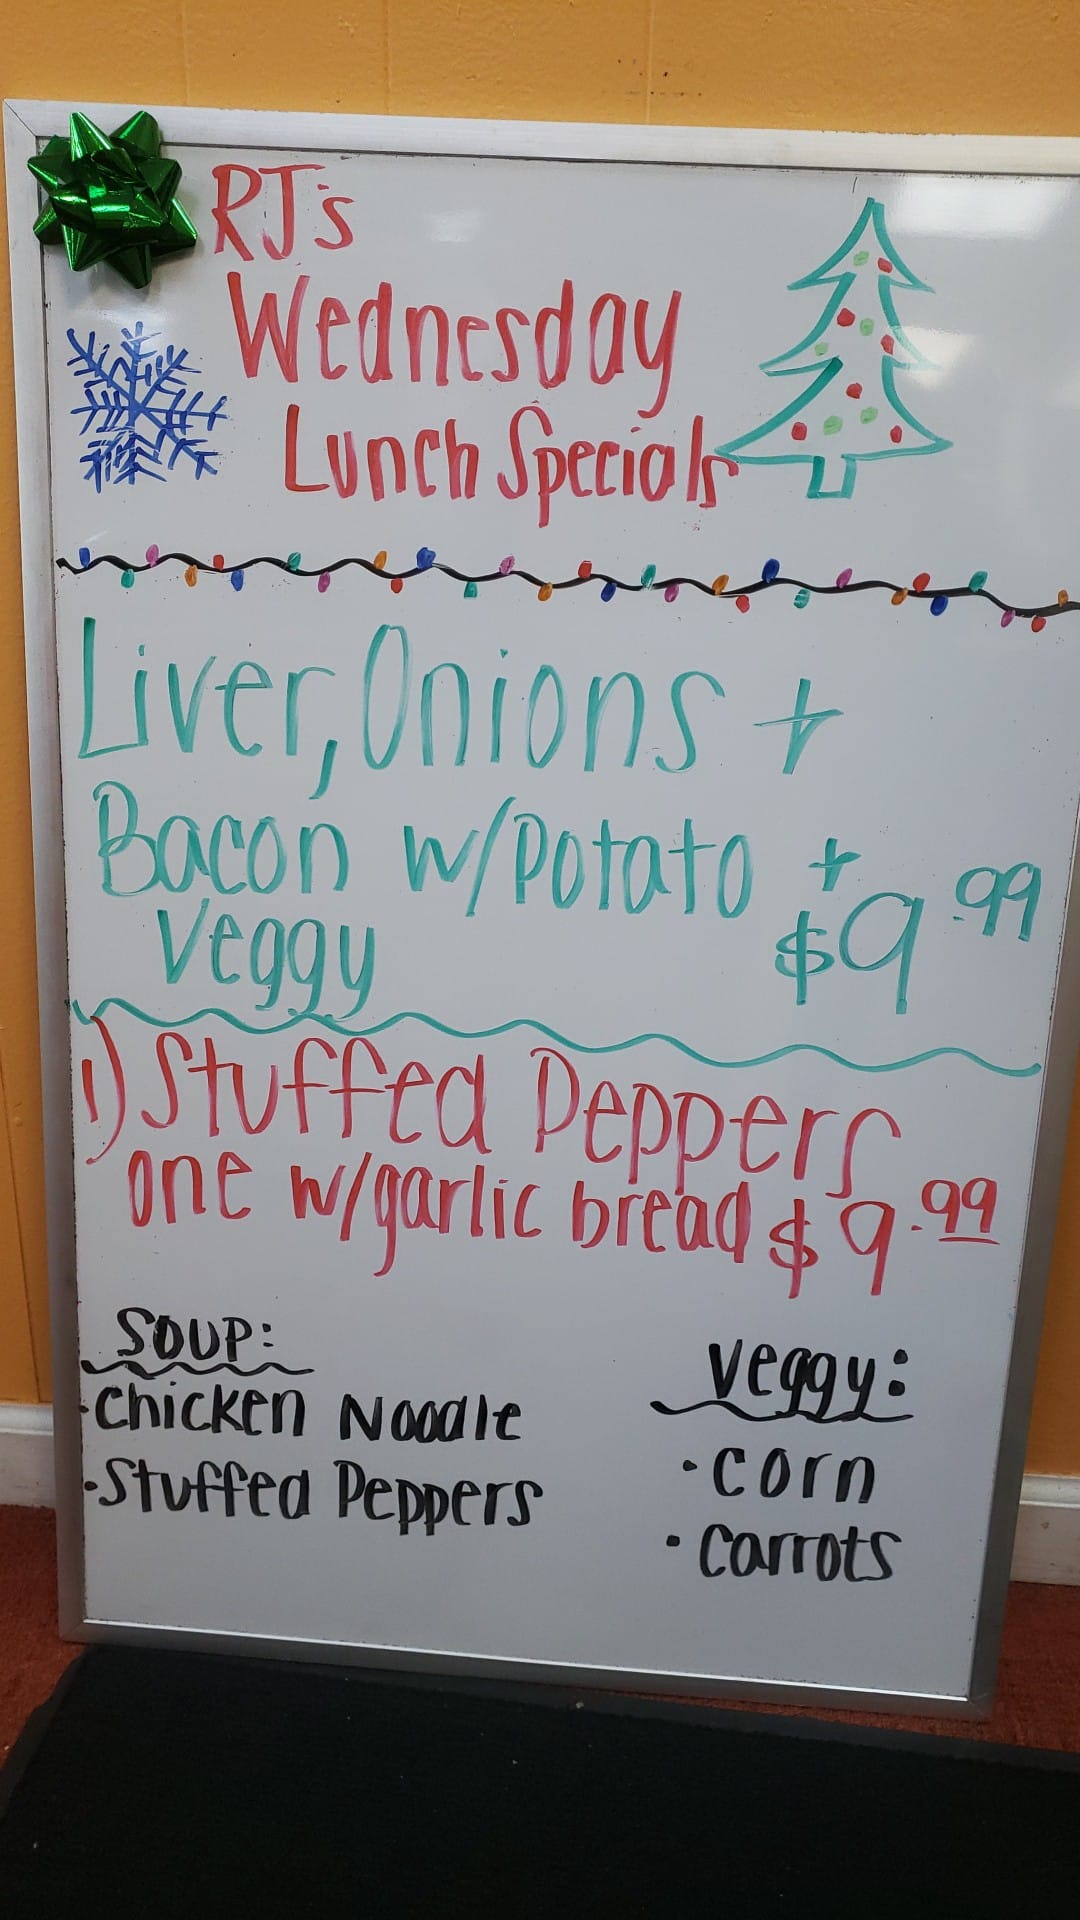 RJ's
Wednesday
Lunch Specials
Liver, Onions +
Bacon w/Potato +
Veggy $9.99
1) Stuffed Peppers
one w/garlic bread $9.99
Soup:
• Chicken Noodle
• Stuffed Peppers
Veggy:
• Corn
• Carrots